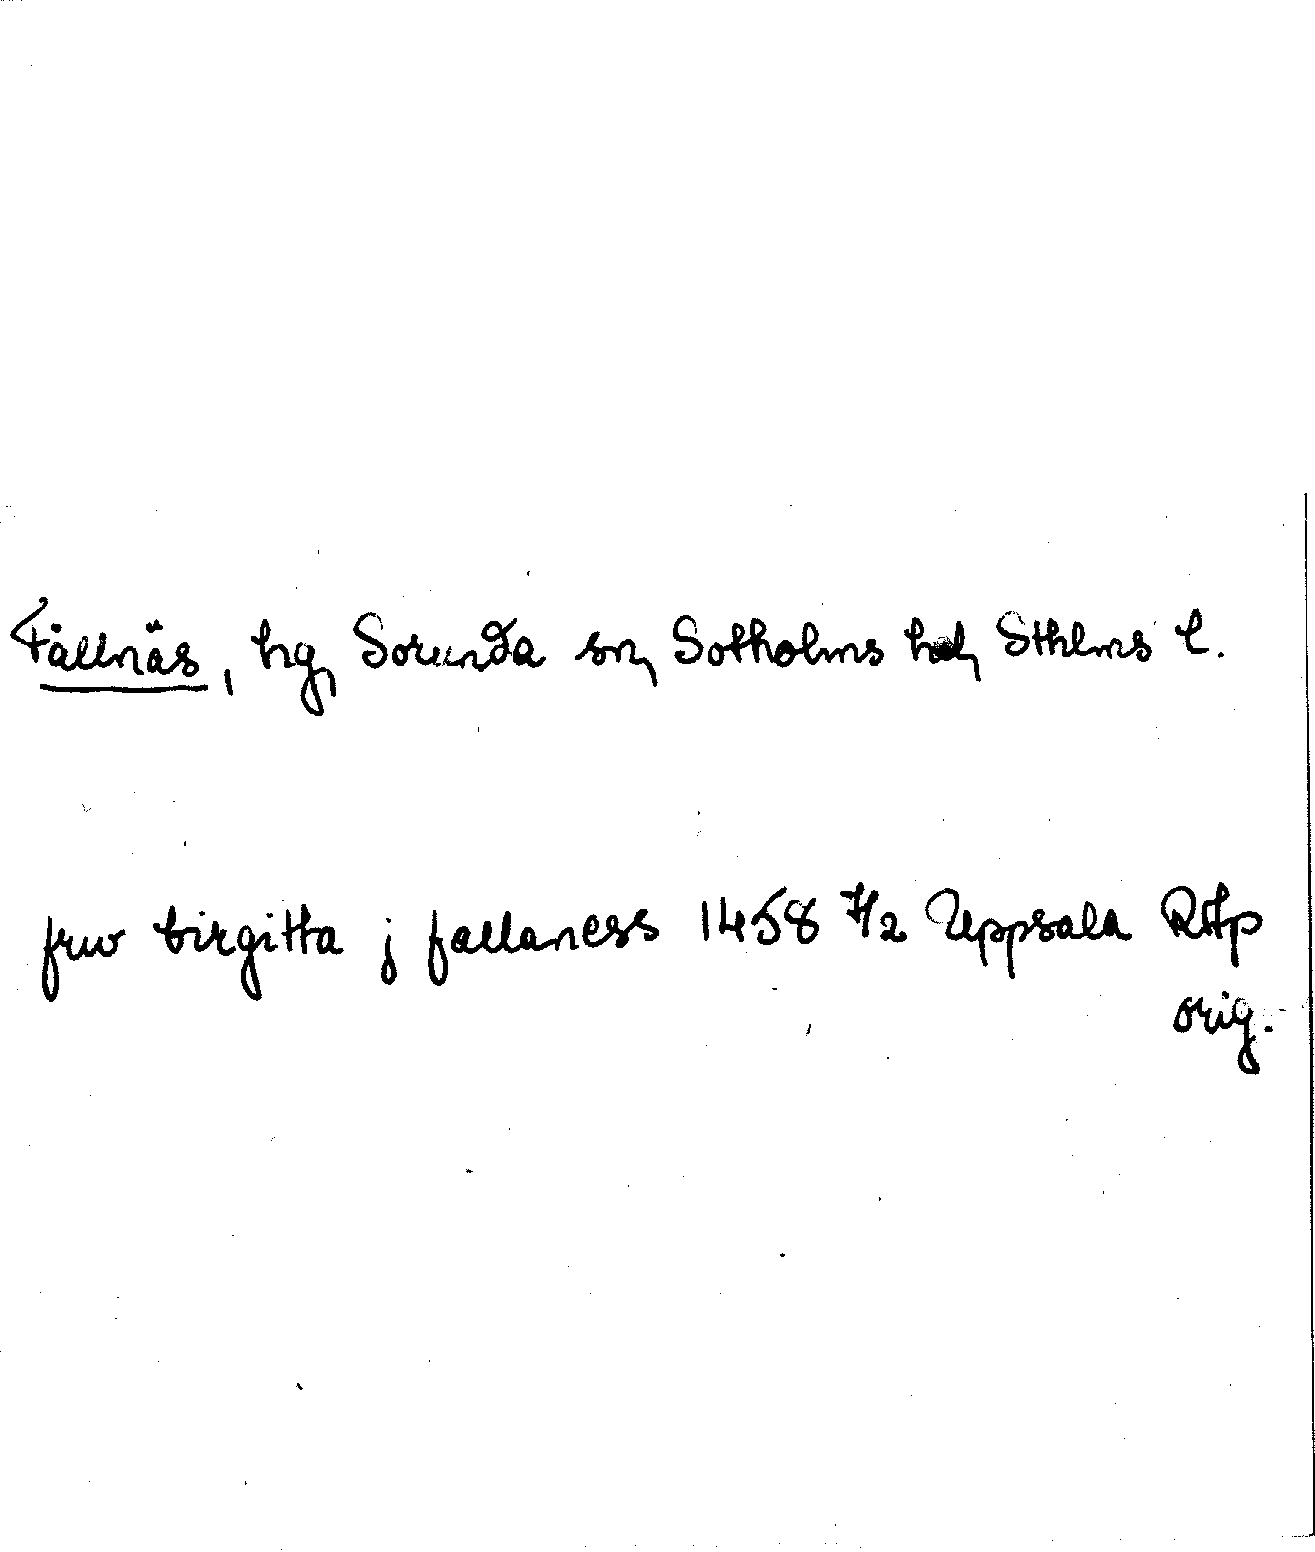 Fållnäs, hg, Sorunda sn, Sotholms hd, Sthlms l.
frw birgitta j fallaness 1458 7/2 Uppsala RAp
orig.